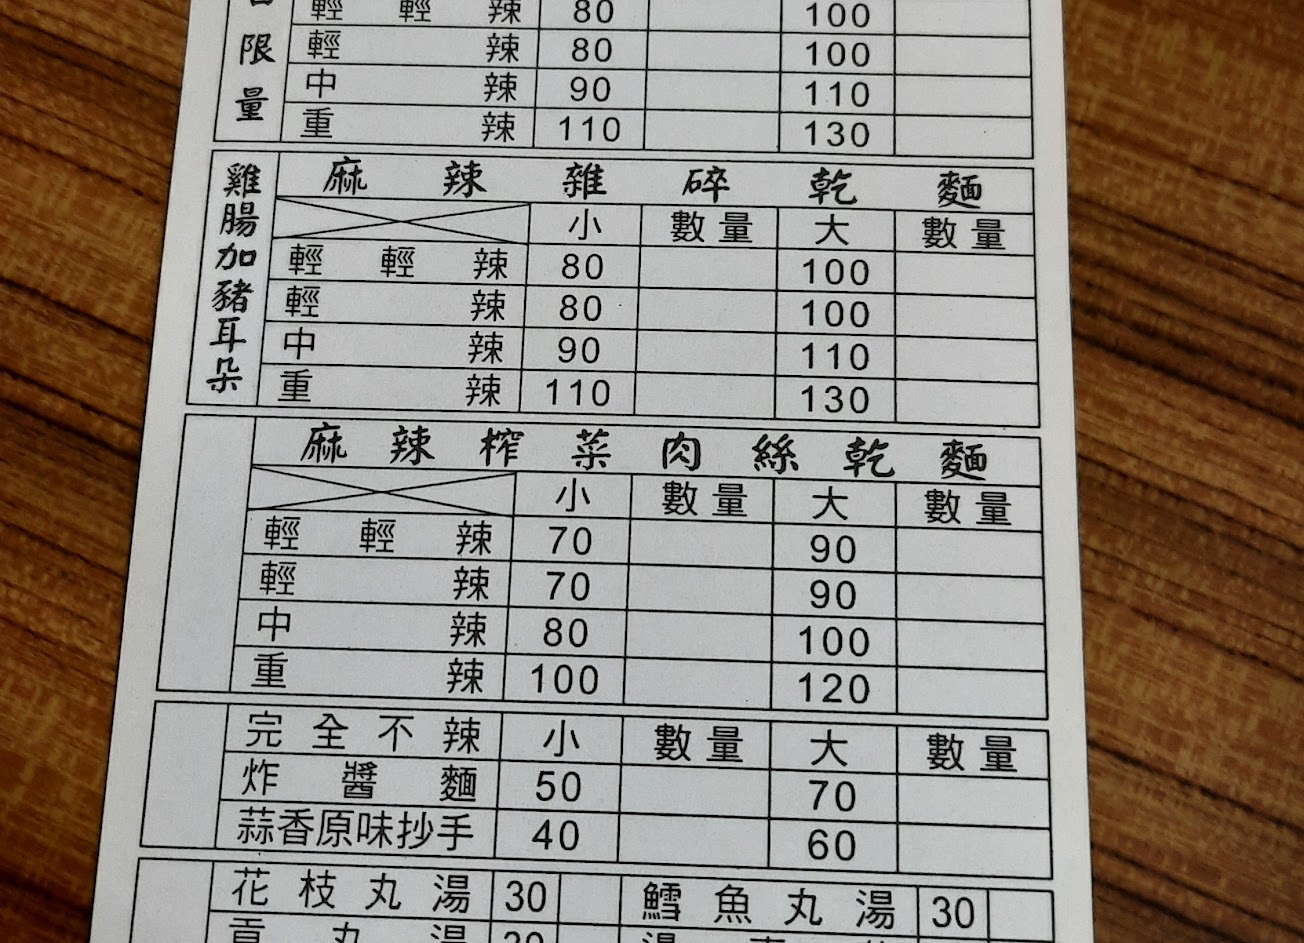 限量
輕輕辣 80 100
輕辣 80 100
中辣 90 110
重辣 110 130
雞腸加豬耳朵
麻辣雜碎乾麵
小 數量 大 數量
輕輕辣 80 100
輕辣 80 100
中辣 90 110
重辣 110 130
麻辣榨菜肉絲乾麵
小 數量 大 數量
輕輕辣 70 90
輕辣 70 90
中辣 80 100
重辣 100 120
完全不辣 小 數量 大 數量
炸醬麵 50 70
蒜香原味抄手 40 60
花枝丸湯 30 鱈魚丸湯 30
貢丸湯